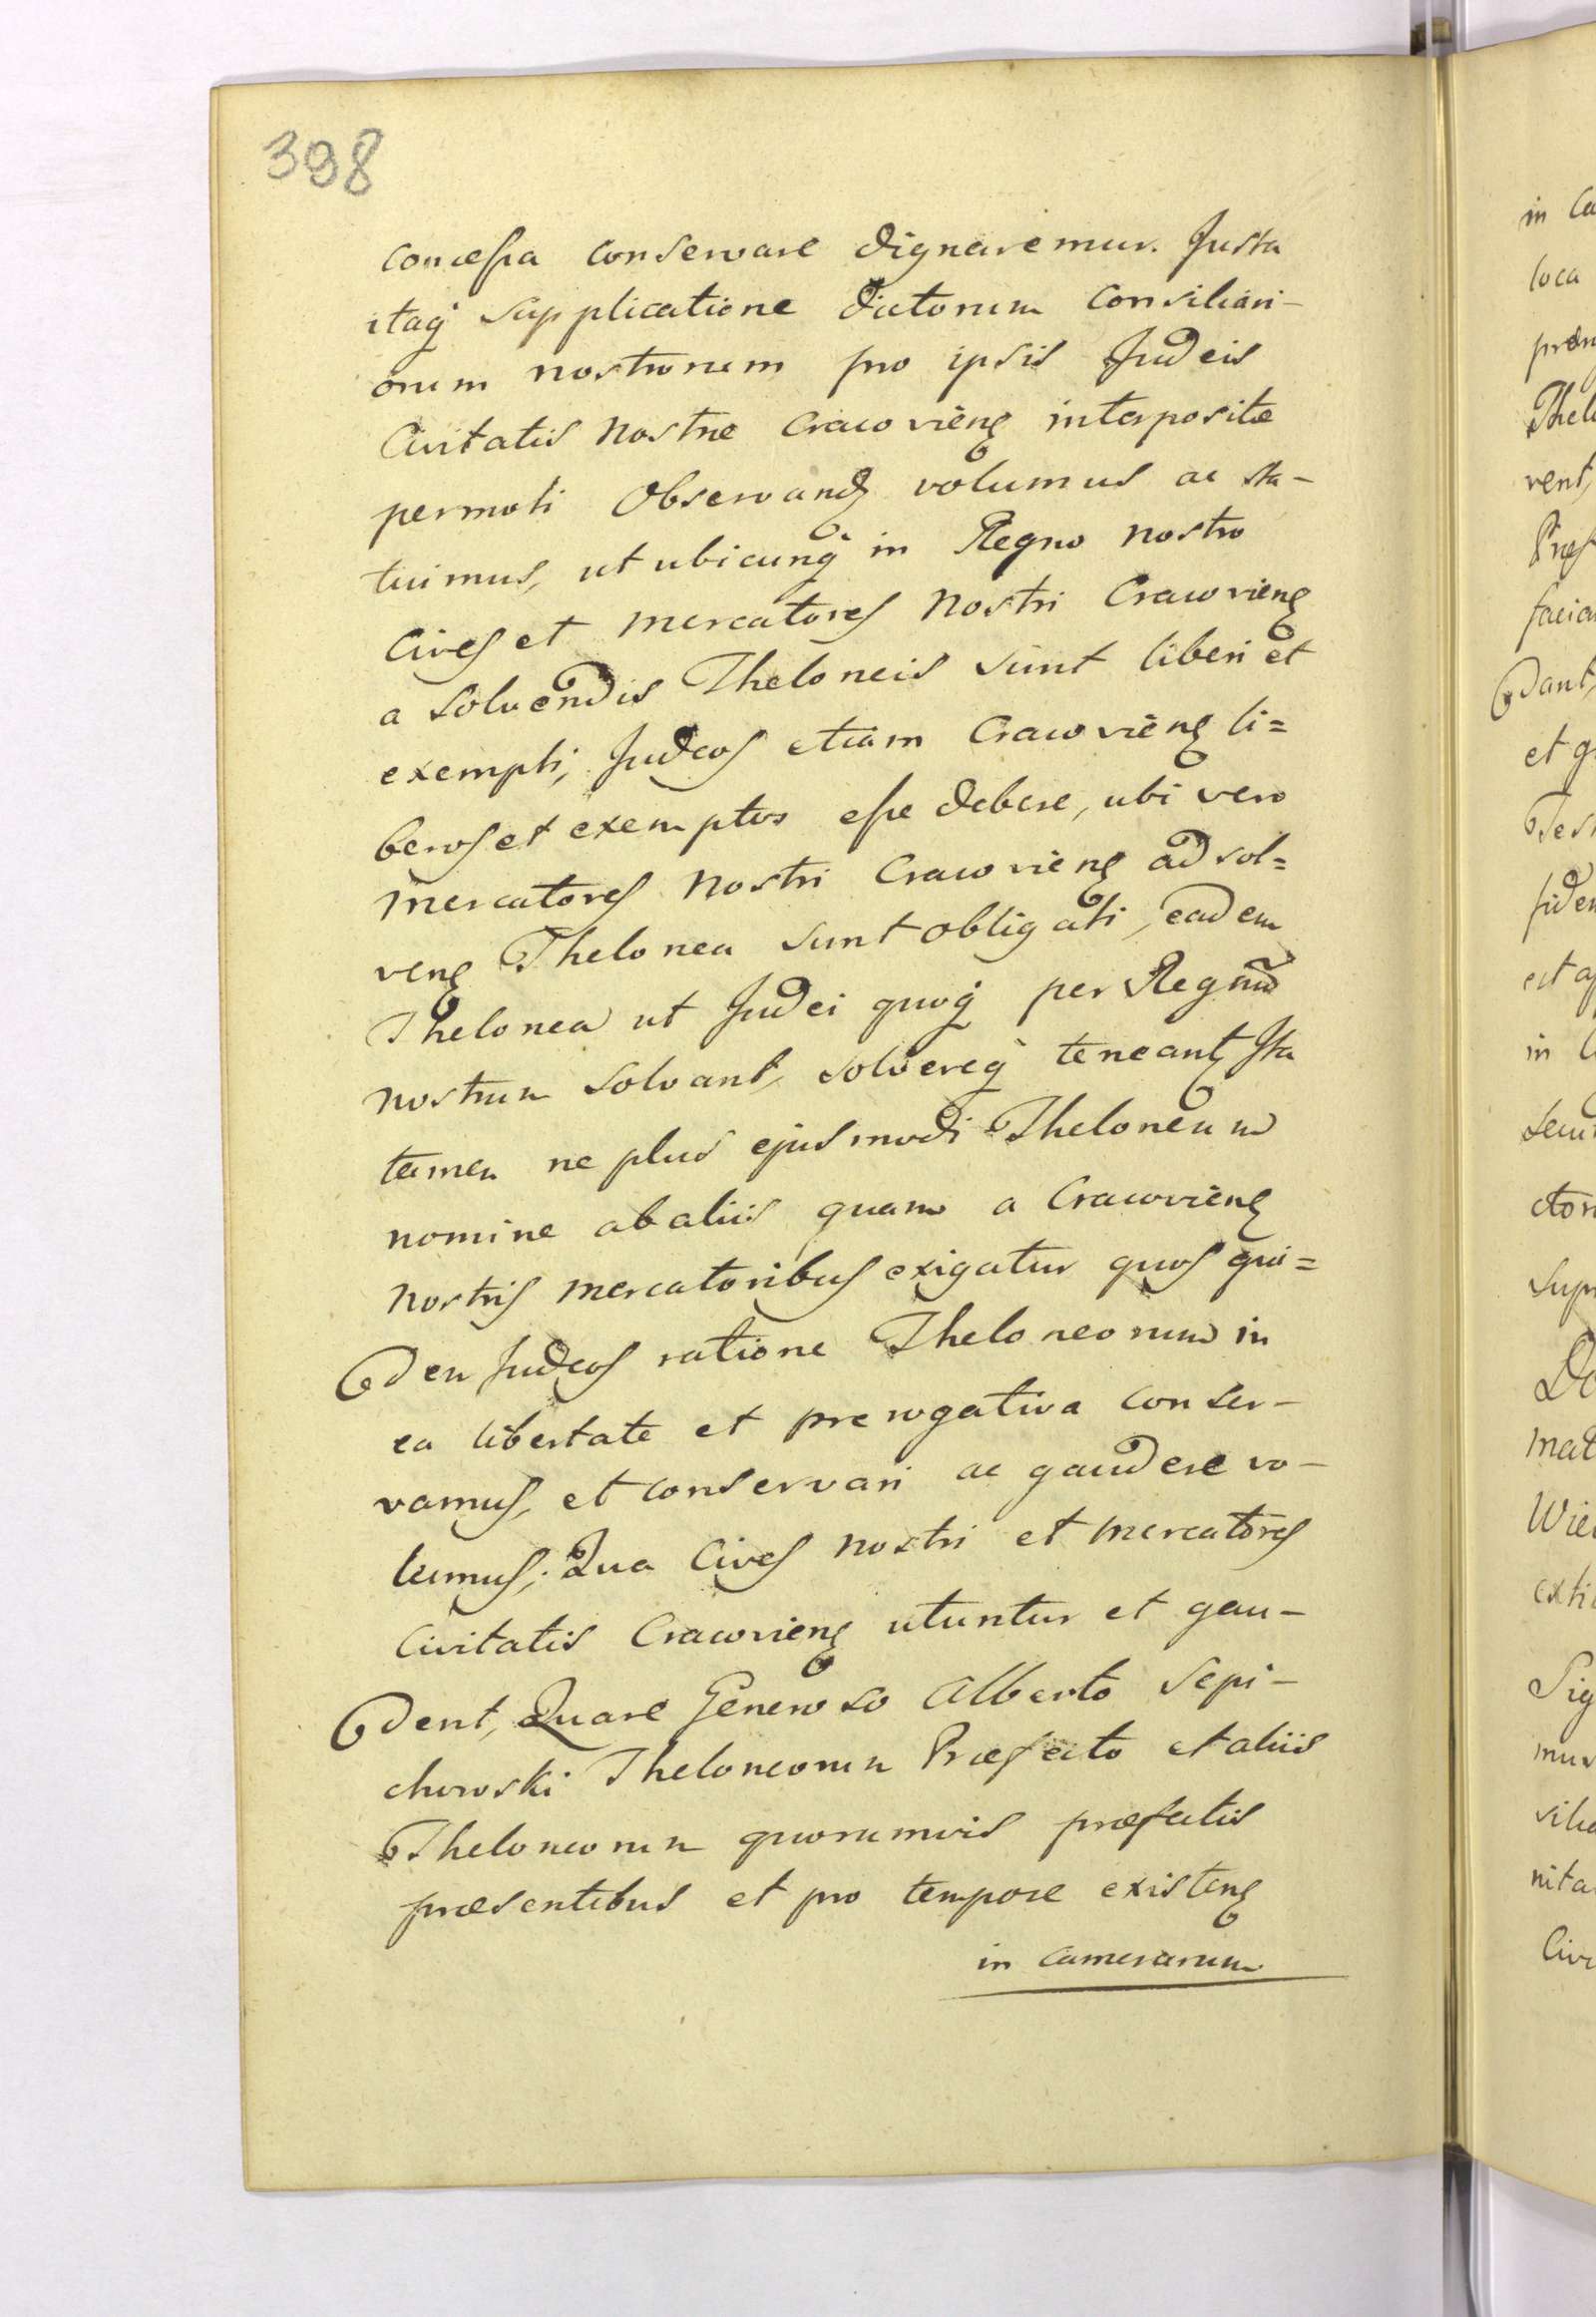 398
concessa conservare dignaremur. Justa
itaq supplicatione dictorum consiliari-
orum nostrorum pro ipsis Judeis
Civitatis Nostre Cracovieng interposita
permoti Observang volumus ac sta-
tuimus, ut ubicunq in Regno nostro
Cives et mercatores Nostri Cracovieng
a solvendis Theloneis sunt liberi et
exempti, Judeos etiam Cracovieng li=
beros et exemptos esse debere, ubi vero
mercatores Nostri Cracovieng ad sol=
veng Thelonea sunt obligati, eadem
Thelonea ut Judei quoq per Regnũ
nostrum solvant, solvereq teneant, Ita
tamen ne plus ejusmodi Theloneum
nomine ab aliis quam a Cracovieng
nostris mercatoribus exigatur quos qui=
dem Judeos ratione Theloneorum in
ea libertate et prerogativa conser-
vamus, et conservari ac gaudere vo-
lumus; Qua Cives nostri et mercatores
Civitatis Cracovieng utuntur et gau-
dent, Quare Generoso Alberto Sepi-
chowski Theloneorum Præfecto et aliis
Theloneorum quorumvis præfectis
præsentibus et pro tempore existeng
in camerarum
in
loca
Thel
vent,
dant,
et g
in
Supr
mat
Sig
nita